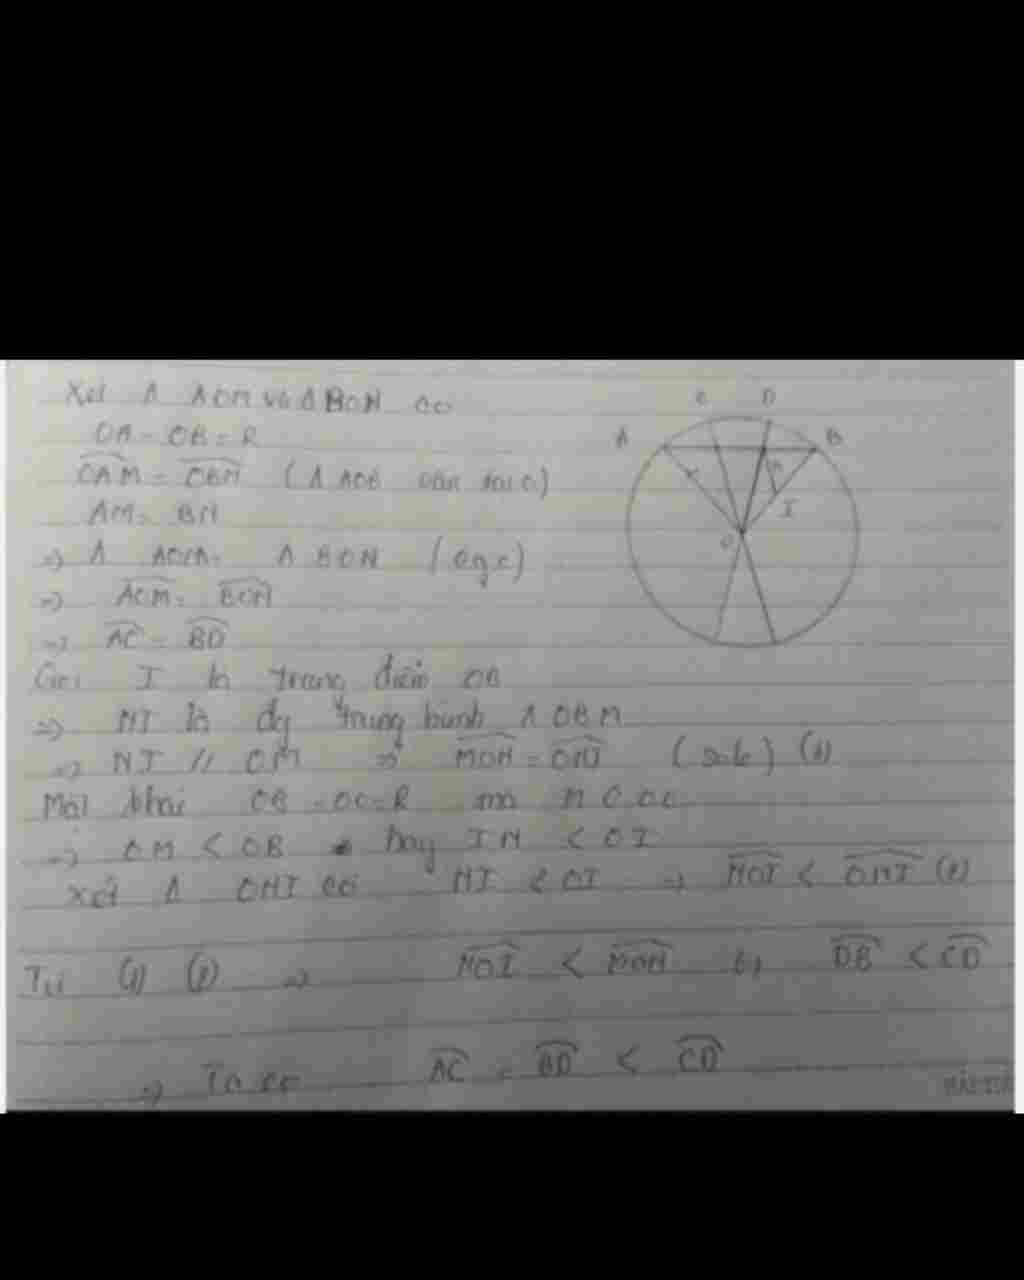 Xét Δ AOM và Δ BON có
C D
OA = OB = R
A B
OAM = OBN (Δ AOB cân tại O)
AM = BN
I
⇒ Δ AOM = Δ BON (c.g.c)
O
⇒ AOM = BON
⇒ AC = BD
Gọi I là trung điểm OB
⇒ NI là đg trung bình Δ OBM
⇒ NI // OM ⇒ MON = ONI (slt) (1)
Mặt khác OB = OC = R mà M ∈ OC
⇒ OM < OB hay IN < OI
Xét Δ ONI có NI < OI ⇒ NOI < ONI (2)
Từ (1) (2) ⇒ NOI < MON DB < CD
⇒ Ta có AC = BD < CD